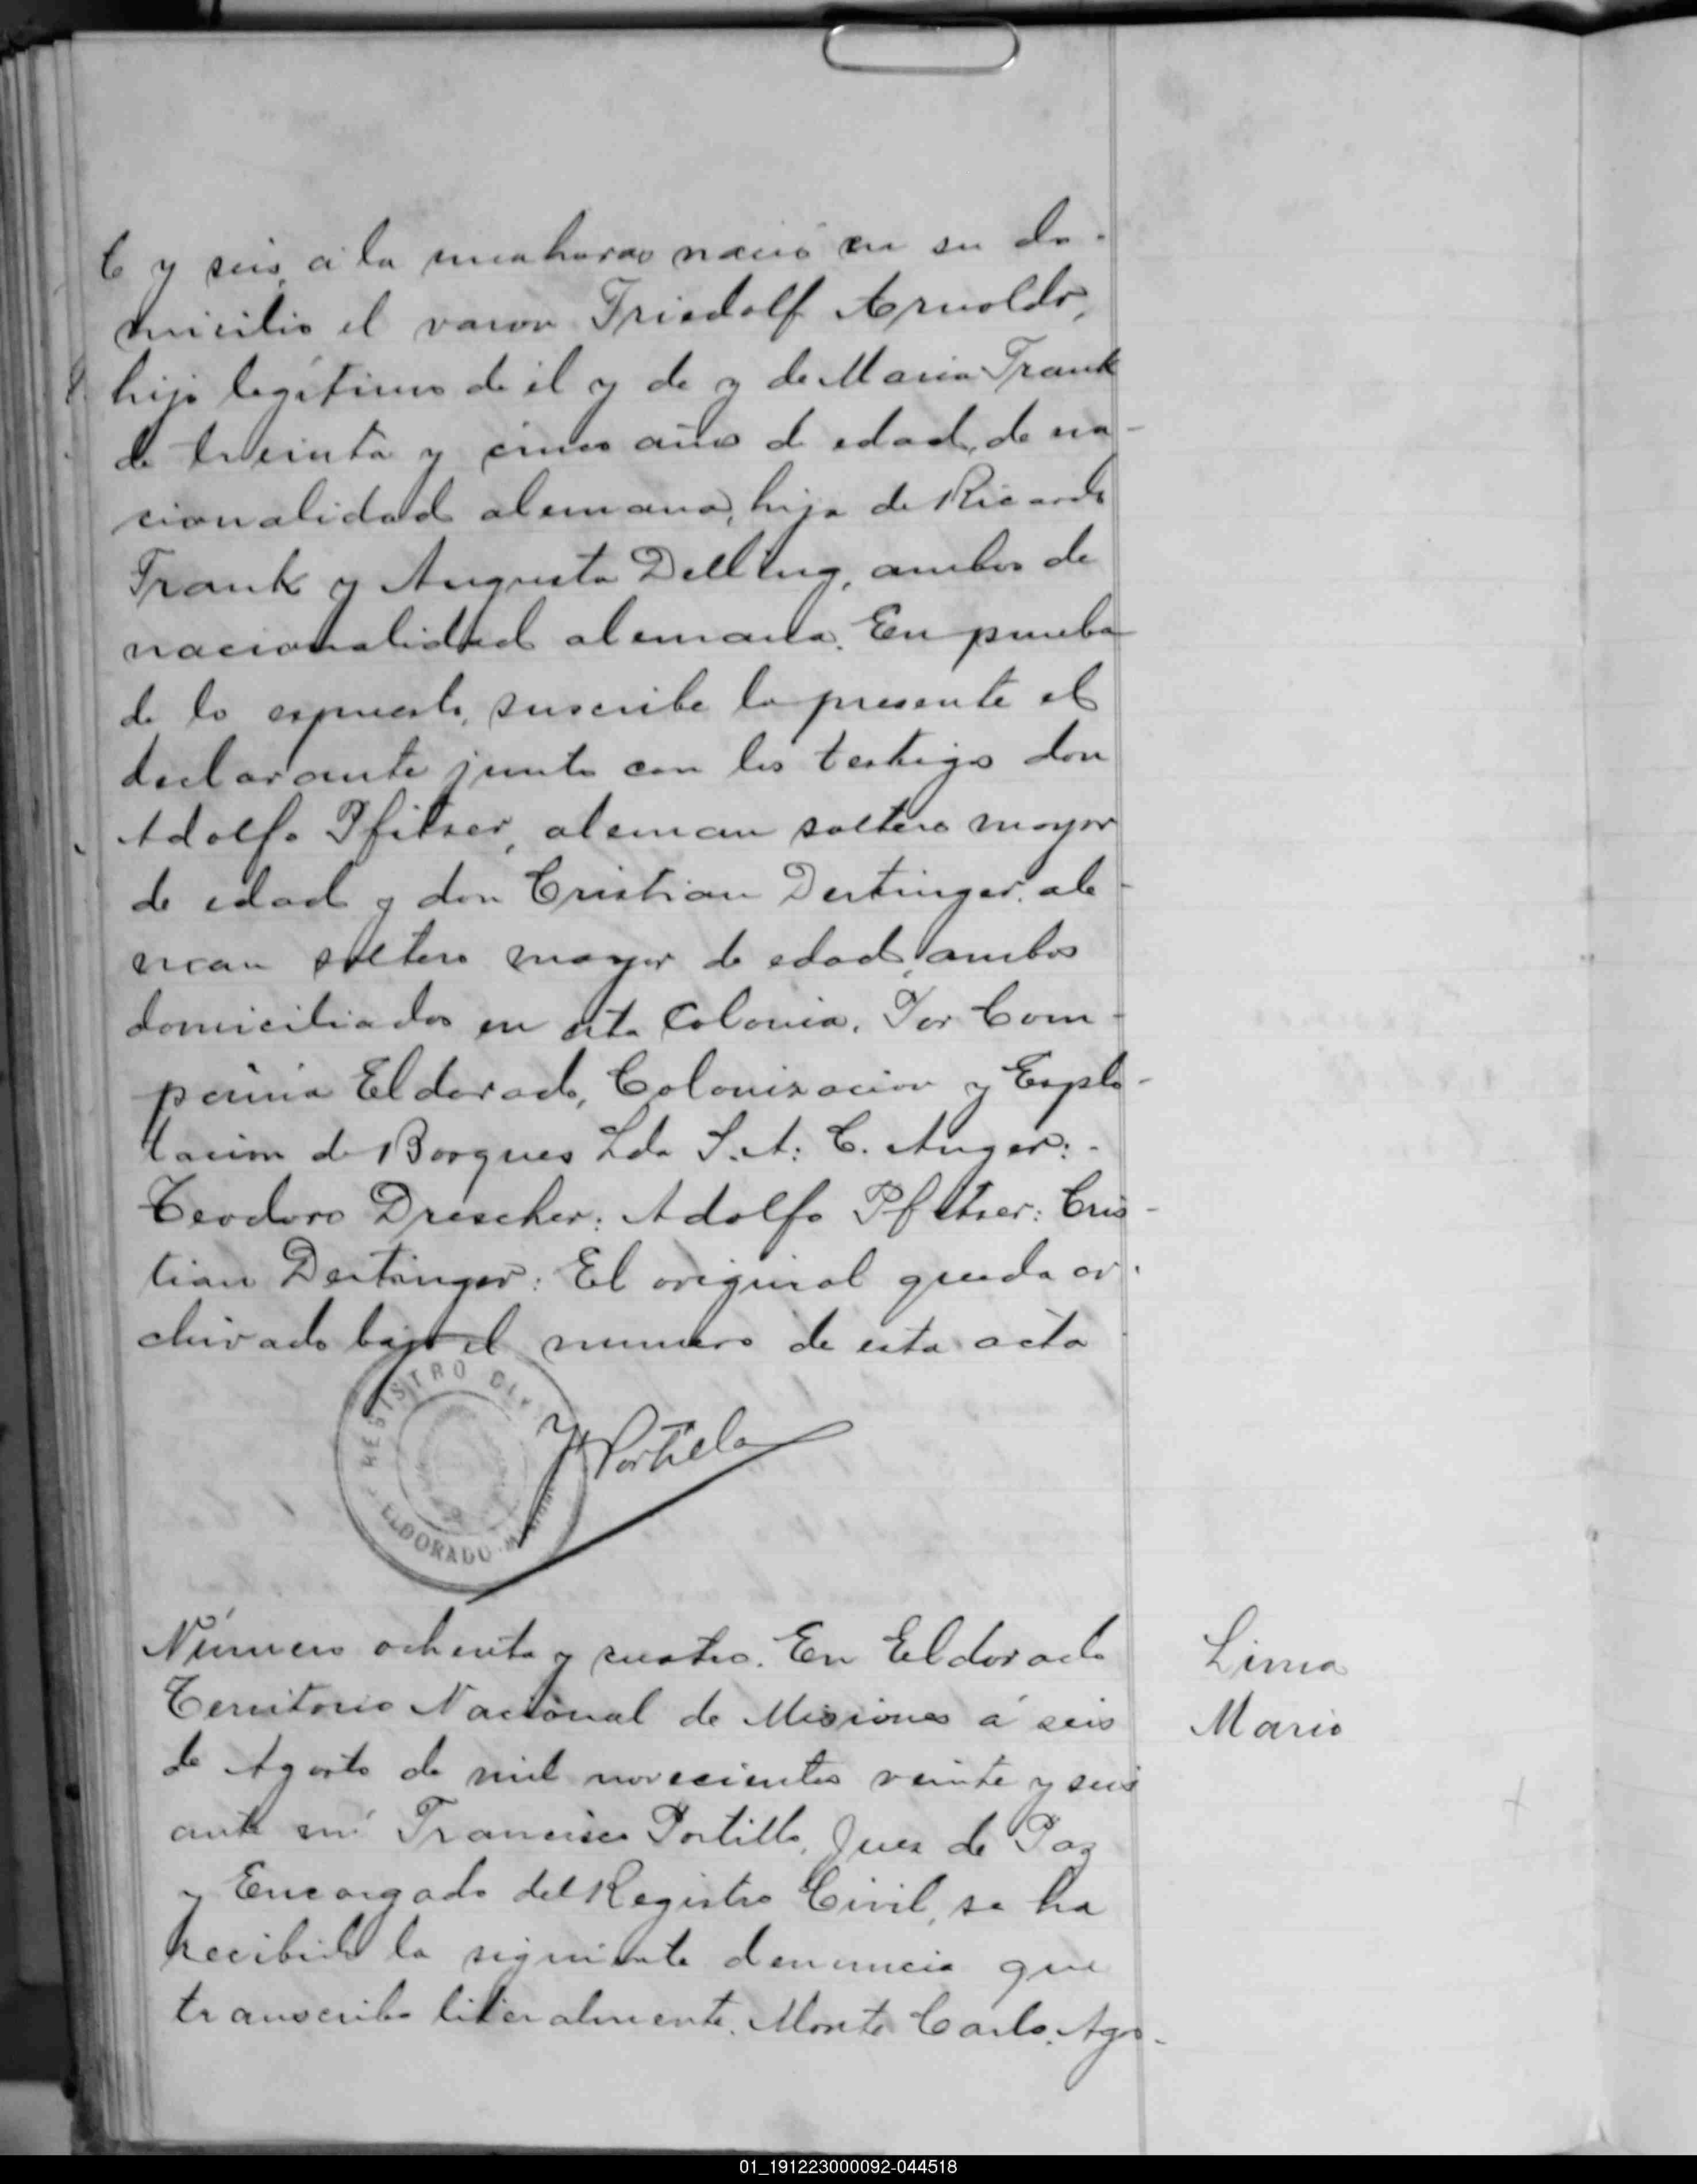 te y seis, a la una horas nació en su do-
micilio el varon Friedolf Arnoldo,
hijo legítimo de él y de y de Maria Frank
de treinta y cinco años d edad, de na-
cionalidad alemana, hija de Ricardo
Frank y Augusta Delling, ambos de
nacionalidad alemana. En prueba
de lo espuesto, suscribe la presente el
declarante junto con los testigos don
Adolfo Pfitzer, aleman soltero mayor
de edad y don Cristian Dertinger, ale-
man soltero mayor de edad, ambos
domiciliados en esta Colonia. Por Com-
pañia Eldorado, Colonizacion y Esplo-
tacion de Bosques Lda S.A: C. Anger:-
Teodoro Drescher: Adolfo Pfitzer: Cris-
tian Dertinger: El original queda ar-
chivado bajo el numero de esta acta
REGISTRO CIVIL
ELDORADO
Portillo
Número ochenta y cuatro. En Eldorado
Lima
Territorio Nacional de Misiones á seis
Mario
de Agosto de mil novecientos veinte y seis
ante mí Francisco Portillo, Juez de Paz
y Encargado del Registro Civil, se ha
recibido la siguiente denuncia que
transcribo literalmente. Monte Carlo, Agos-
01_191223000092-044518